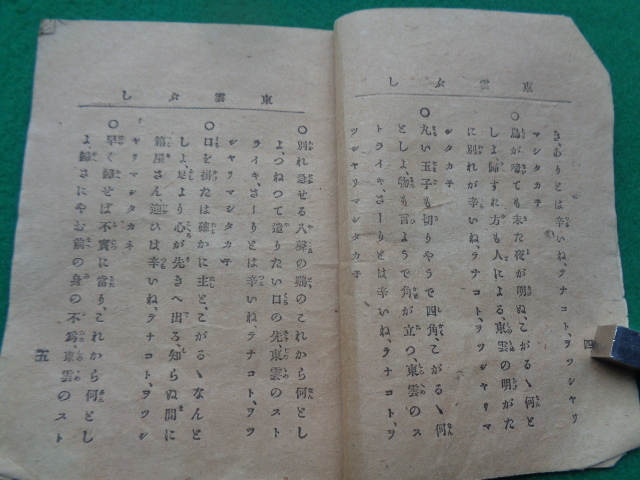 東雲ぶし
さありとは辛いね、テナコト、ヲツシヤリ
マシタカネ
〇鳥が啼ても未だ夜が明ぬ、こがるゝ何と
しよ、歸すに方も人による、東雲の明がた
に別れが辛いね、テナコト、ヲツシヤリマ
シタカネ
〇丸い玉子も切りやうで四角、こがるゝ何
としよ、物も言ようで角が立つ、東雲のス
トライキ、さーりとは辛いね、テナコト、ヲ
ツシヤリマシタカネ
四
東雲ぶし
〇別れ急せる八聲の鷄のこれから何とし
よ、つねつて遣りたい口の先、東雲のスト
ライキ、さーりとは辛いね、テナコト、ヲツ
シヤリマシタカネ
〇口を掛たは確かに主と、こがるゝなんと
しよ、足より心が先きへ出る、知らぬ間に
箱屋さん迎ひは辛いね、テナコト、ヲツシ
ヤリマシタカネ
〇早く歸せば不實に當り、これから何とし
よ、歸さにやお前の身の不爲、東雲のスト
五